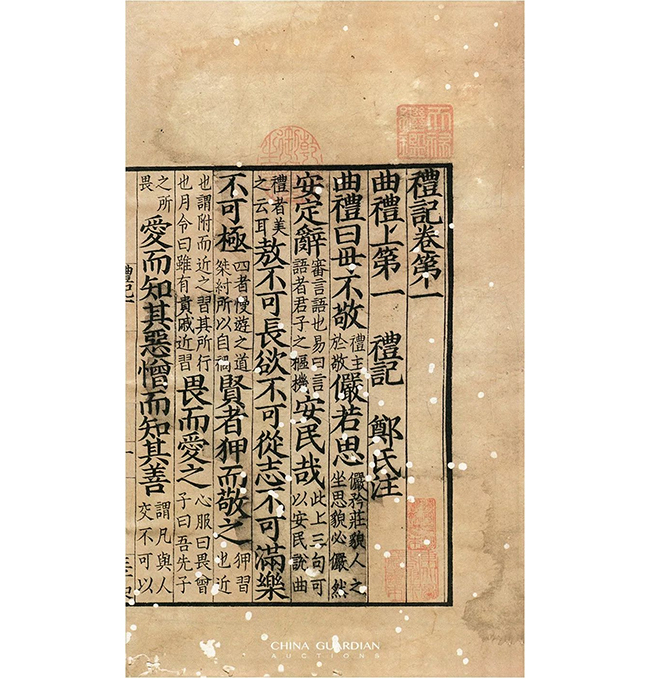 禮記卷第一
曲禮上第一 禮記 鄭氏注
曲禮曰毋不敬 禮主於敬 儼若思 儼矜莊貌人之坐思貌必儼然
安定辭 審言語也易曰言語者君子之樞機 安民哉 此上三句可以安民說曲
禮者美之云耳 敖不可長欲不可從志不可滿樂
不可極 四者慢遊之道桀紂所以自禍 賢者狎而敬之 狎習也近
也謂附而近之習其所行也月令曰雖有貴戚近習 畏而愛之 心服曰畏曾子曰吾先子
之所畏 愛而知其惡憎而知其善 謂凡與人交不可以
CHINA GUARDIAN
AUCTIONS